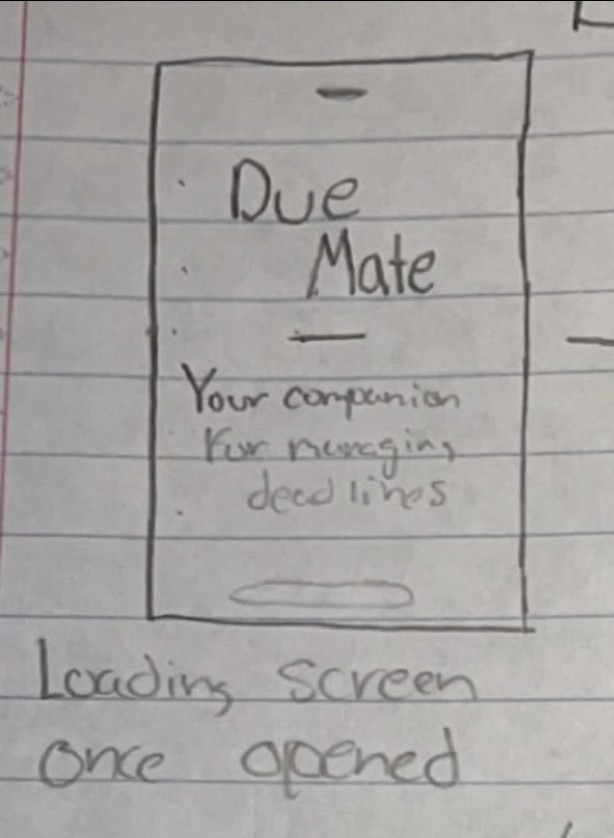 Due
Mate
Your companion
for managing
deadlines
Loading screen
once opened